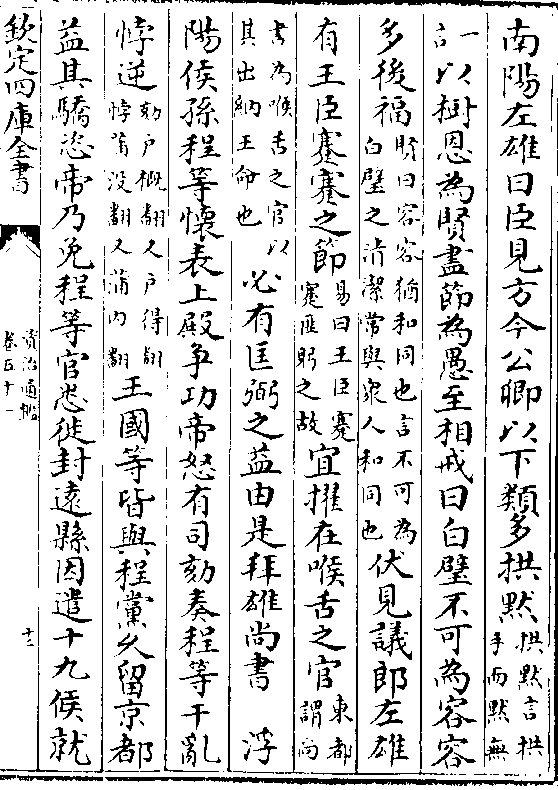 南陽左雄曰臣見方今公卿以下類多拱默拱默言拱手而默無
一言以樹恩為賢盡節為愚至相戒曰白璧不可為容容
多後福賢曰容容猶和同也言不可為白璧之清潔常與衆人和同也伏見議郎左雄
有王臣蹇蹇之節易曰王臣蹇蹇匪躬之故宜擢在喉舌之官東都謂尚
書為喉舌之官以其出納王命也必有匡弼之益由是拜雄尚書 浮
陽侯孫程等懷表上殿爭功帝怒有司劾奏程等干亂
悖逆劾戶概翻又戶得翻悖蒲没翻又蒲内翻王國等皆與程黨久留京都
益其驕恣帝乃免程等官悉徙封遠縣因遣十九侯就
欽定四庫全書
資治通鑑
卷五十一
十二